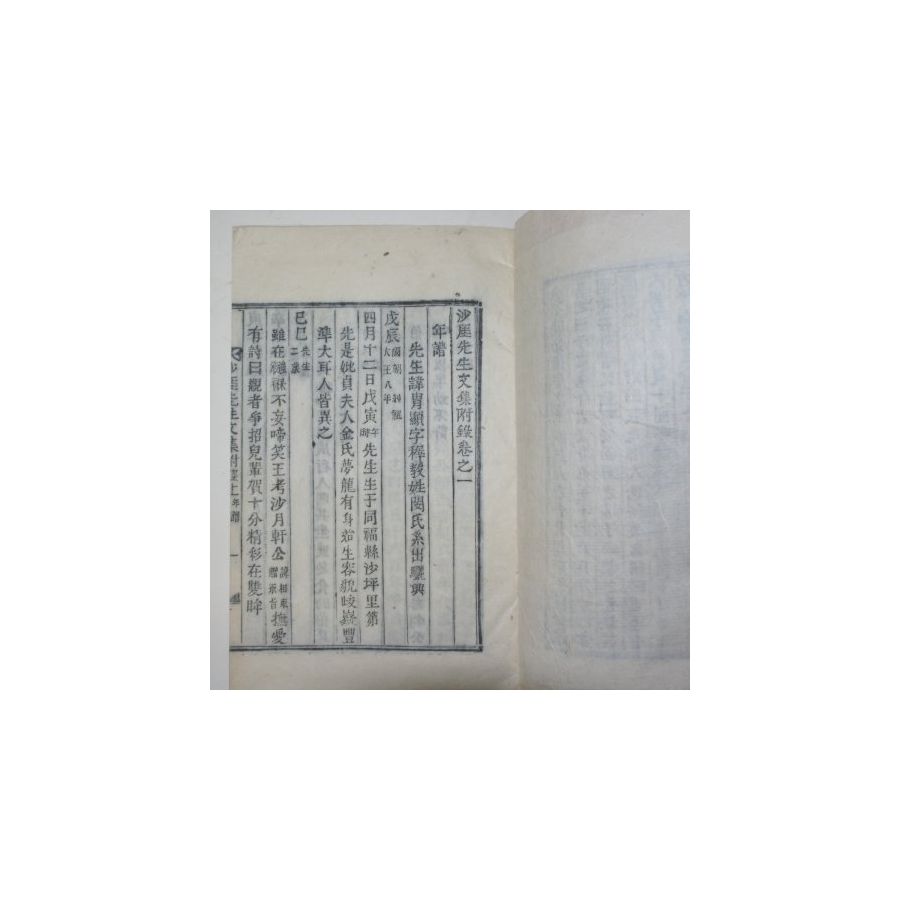 沙厓先生文集附錄卷之一
年譜
先生諱冑顯字穉敎姓閔氏系出驪興
戊辰國朝純祖大王八年
四月十二日戊寅午時先生生于同福縣沙坪里第
先是妣貞夫人金氏夢龍有身始生容貌峻嶷豐
準大耳人皆異之
己巳先生二歲
雖在襁褓不妄啼笑王考沙月軒公諱相東贈承旨撫愛
有詩曰觀者爭招兒輩賀十分精彩在雙眸
沙厓先生文集附錄上年譜 一